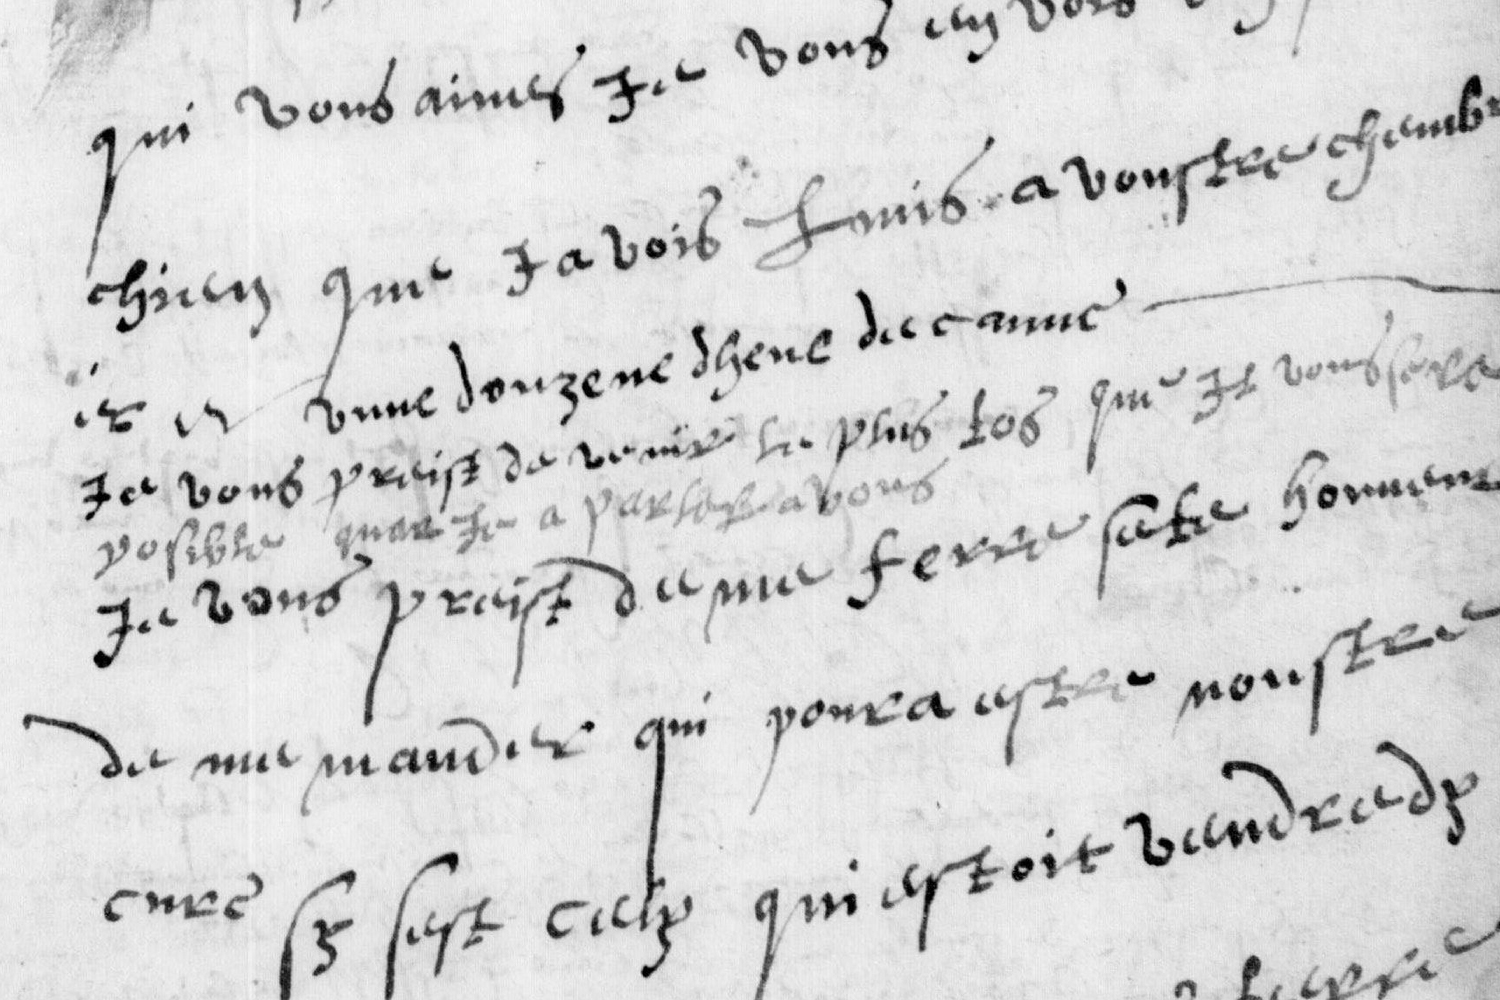 qui vous aimes Je vous en vois
chien que Javois hmis a voustre chembr
ir er vnne douzene dhene de canne
Je vous preist de venir le plus tos que Jl vous sera
posible quar Je a parler a vous
Je vous preist de me ferre sete honneur
de me mander qui poura estre noustre
cure sy sest cely qui estoit vendredy